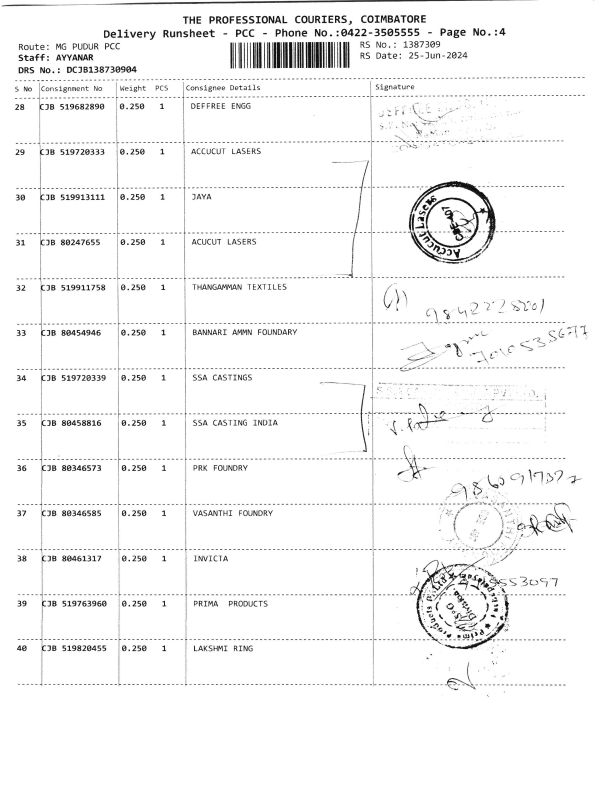 THE PROFESSIONAL COURIERS, COIMBATORE
Delivery Runsheet - PCC - Phone No.:0422-3505555 - Page No.:4
Route: MG PUDUR PCC RS No.: 1387309
Staff: AYYANAR RS Date: 25-Jun-2024
DRS No.: DCJB138730904
S No Consignment No Weight PCS Consignee Details Signature
28 CJB 519682890 0.250 1 DEFFREE ENGG
29 CJB 519720333 0.250 1 ACCUCUT LASERS
30 CJB 519913111 0.250 1 JAYA
Accucut Lasers
CBE-407
31 CJB 80247655 0.250 1 ACUCUT LASERS
32 CJB 519911758 0.250 1 THANGAMMAN TEXTILES
33 CJB 80454946 0.250 1 BANNARI AMMN FOUNDARY
34 CJB 519720339 0.250 1 SSA CASTINGS
35 CJB 80458816 0.250 1 SSA CASTING INDIA
36 CJB 80346573 0.250 1 PRK FOUNDRY
37 CJB 80346585 0.250 1 VASANTHI FOUNDRY
38 CJB 80461317 0.250 1 INVICTA
39 CJB 519763960 0.250 1 PRIMA PRODUCTS
40 CJB 519820455 0.250 1 LAKSHMI RING